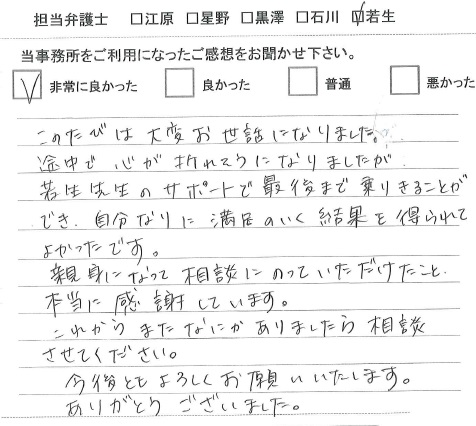 担当弁護士 □江原 □星野 □黒澤 □石川 ☑若生
当事務所をご利用になったご感想をお聞かせ下さい。
☑ 非常に良かった □ 良かった □ 普通 □ 悪かった
このたびは大変お世話になりました。
途中で心が折れそうになりましたが
若生先生のサポートで最後まで乗りきることが
でき、自分なりに満足のいく結果を得られて
よかったです。
親身になって相談にのっていただけたこと、
本当に感謝しています。
これからまたなにかありましたら相談
させてください。
今後ともよろしくお願いいたします。
ありがとうございました。